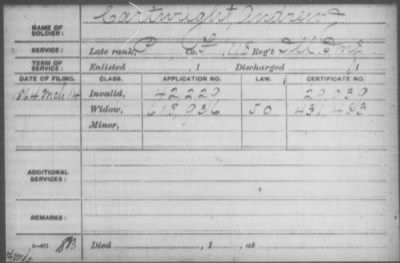 NAME OF SOLDIER: Cartwright, Andrew
SERVICE: Late rank, P Co. F, 118 Reg't Ill. Inf.
TERM OF SERVICE: Enlisted , 1 Discharged , 1
DATE OF FILING. CLASS. APPLICATION NO. LAW. CERTIFICATE NO.
1864 Mch 14 Invalid, 42220
Widow, 618,036 431,483
Minor,
ADDITIONAL SERVICES:
REMARKS:
Died , 1 , at